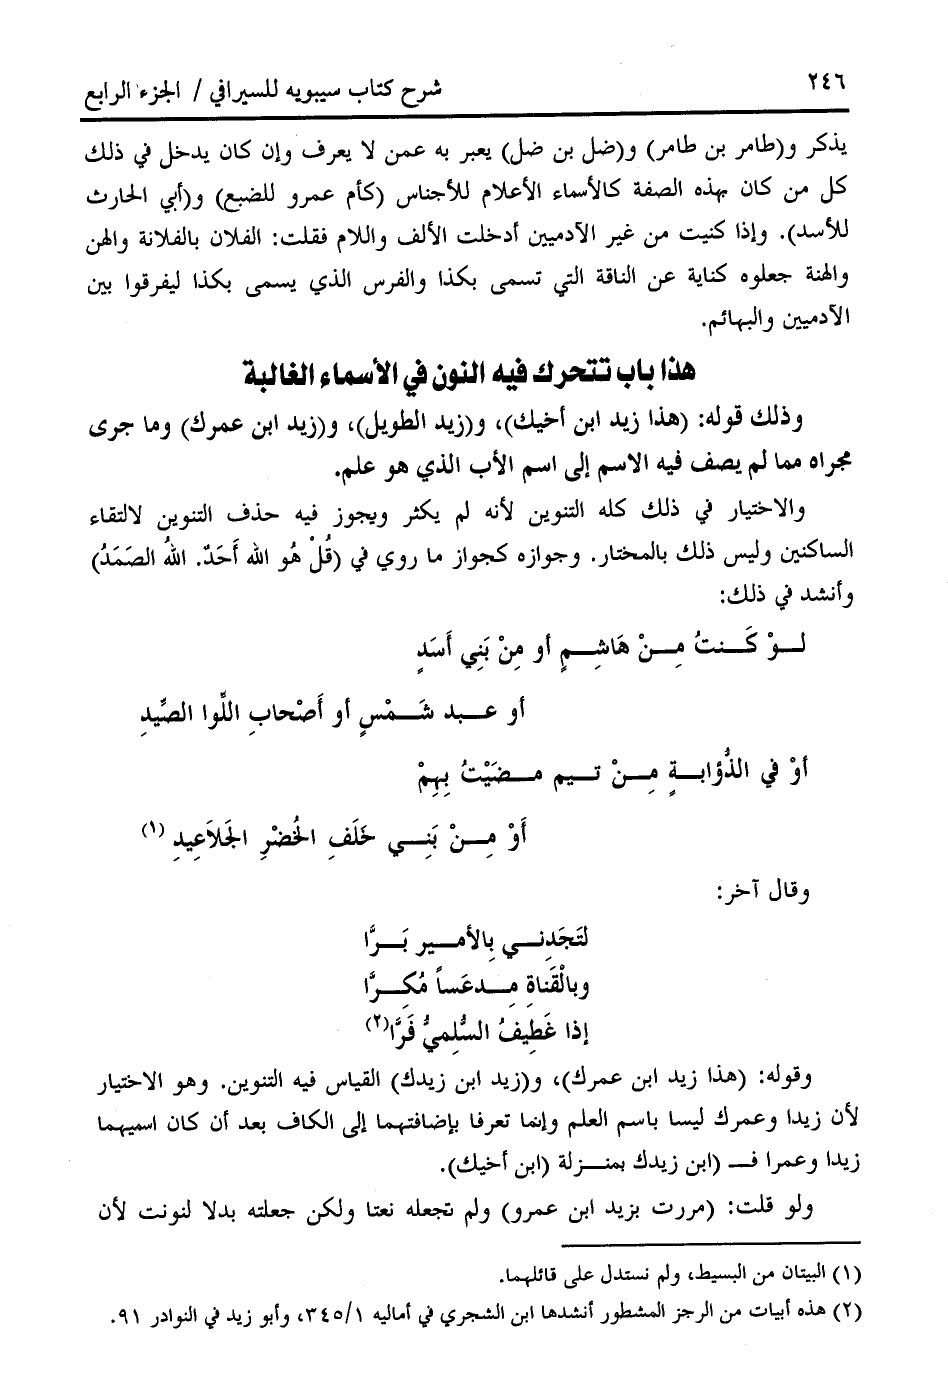 ٢٤٦
شرح كتاب سيبويه للسيرافي / الجزء الرابع
يذكر و(طامر بن طامر) و(ضل بن ضل) يعبر به عمن لا يعرف وإن كان يدخل في ذلك
كل من كان بهذه الصفة كالأسماء الأعلام للأجناس (كأم عمرو للضبع) و(أبي الحارث
للأسد). وإذا كنيت من غير الآدميين أدخلت الألف واللام فقلت: الفلان بالفلانة والهن
والهنة جعلوه كناية عن الناقة التي تسمى بكذا والفرس الذي يسمى بكذا ليفرقوا بين
الآدميين والبهائم.
هذا باب تتحرك فيه النون في الأسماء الغالبة
وذلك قوله: (هذا زيد ابن أخيك)، و(زيد الطويل)، و(زيد ابن عمرك) وما جرى
مجراه مما لم يصف فيه الاسم إلى اسم الأب الذي هو علم.
والاختيار في ذلك كله التنوين لأنه لم يكثر ويجوز فيه حذف التنوين لالتقاء
الساكنين وليس ذلك بالمختار. وجوازه كجواز ما روي في (قُلْ هُو الله أَحَدٌ. اللهُ الصَمَدُ)
وأنشد في ذلك:
لـــوْ كَـــنتُ مِـــنْ هَاشِـــمٍ أو مِنْ بَنِي أَسَدٍ
أو عـــبد شَـــمْسٍ أو أَصْحابِ اللَّوا الصِّيدِ
أوْ في الذُّؤابـــةٍ مِـــنْ تـــيم مـــضَيْتُ بِهِمْ
أَوْ مِـــنْ بَنِـــي خَلَفِ الخُضْرِ الجَلاَعِيدِ (١)
وقال آخر:
لتَجَدِنـــي بِالأمـــير بَـــرًّا
وبالْقَناةِ مِـــدعَساً مُكِـــرًّا
إذا غَطِيفُ السُّلمِيُّ فَرَّا(٢)
وقوله: (هذا زيد ابن عمرك)، و(زيد ابن زيدك) القياس فيه التنوين. وهو الاختيار
لأن زيدا وعمرك ليسا باسم العلم وإنما تعرفا بإضافتهما إلى الكاف بعد أن كان اسميهما
زيدا وعمرا فـــ (ابن زيدك بمنـــزلة (ابن أخيك).
ولو قلت: (مررت بزيد ابن عمرو) ولم تجعله نعتا ولكن جعلته بدلا لنونت لأن
(١) البيتان من البسيط، ولم نستدل على قائلهما.
(٢) هذه أبيات من الرجز المشطور أنشدها ابن الشجري في أماليه ٣٤٥/١، وأبو زيد في النوادر ٩١.